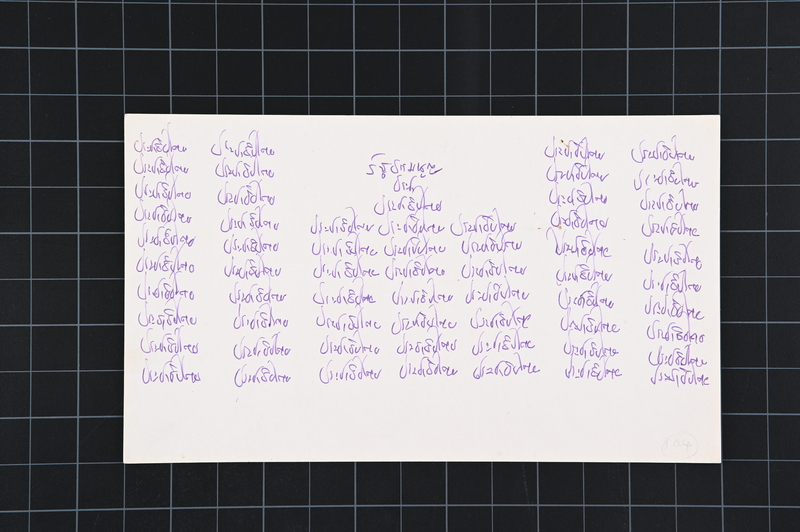 ประชาธิปไตย ประชาธิปไตย ประชาธิปไตย ประชาธิปไตย
ประชาธิปไตย ประชาธิปไตย รัฐธรรมนูญ ประชาธิปไตย ประชาธิปไตย
ประชาธิปไตย ประชาธิปไตย ประชาธิปไตย ประชาธิปไตย ประชาธิปไตย
ประชาธิปไตย ประชาธิปไตย ประชาธิปไตย ประชาธิปไตย ประชาธิปไตย ประชาธิปไตย ประชาธิปไตย
ประชาธิปไตย ประชาธิปไตย ประชาธิปไตย ประชาธิปไตย ประชาธิปไตย ประชาธิปไตย ประชาธิปไตย
ประชาธิปไตย ประชาธิปไตย ประชาธิปไตย ประชาธิปไตย ประชาธิปไตย ประชาธิปไตย ประชาธิปไตย
ประชาธิปไตย ประชาธิปไตย ประชาธิปไตย ประชาธิปไตย ประชาธิปไตย ประชาธิปไตย ประชาธิปไตย
ประชาธิปไตย ประชาธิปไตย ประชาธิปไตย ประชาธิปไตย ประชาธิปไตย ประชาธิปไตย ประชาธิปไตย
ประชาธิปไตย ประชาธิปไตย ประชาธิปไตย ประชาธิปไตย ประชาธิปไตย ประชาธิปไตย ประชาธิปไตย
ประชาธิปไตย ประชาธิปไตย ประชาธิปไตย ประชาธิปไตย ประชาธิปไตย ประชาธิปไตย ประชาธิปไตย